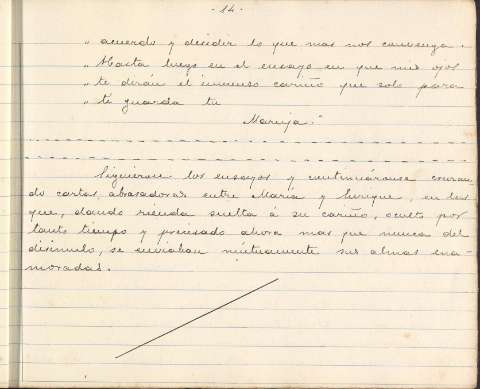 - 14 -
" acuerdo y decidir lo que mas nos convenga.
" Hasta luego en el ensayo en que mis ojos
" te dirán el inmenso cariño que solo para
" tí guarda tu
Maruja."
Siguieron los ensayos y continuáronse cruzan-
do cartas abrasadoras entre María y Enrique, en las
que, dando rienda suelta á su cariño, oculto por
tanto tiempo y precisado ahora mas que nunca del
disimulo, se enviaban mútuamente sus almas ena-
moradas.